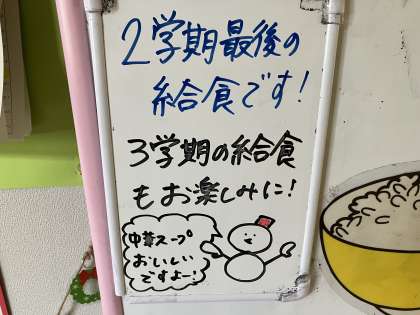 2学期最後の
給食です!
3学期の給食
もお楽しみに!
中華スープ
おいしい
ですよー!